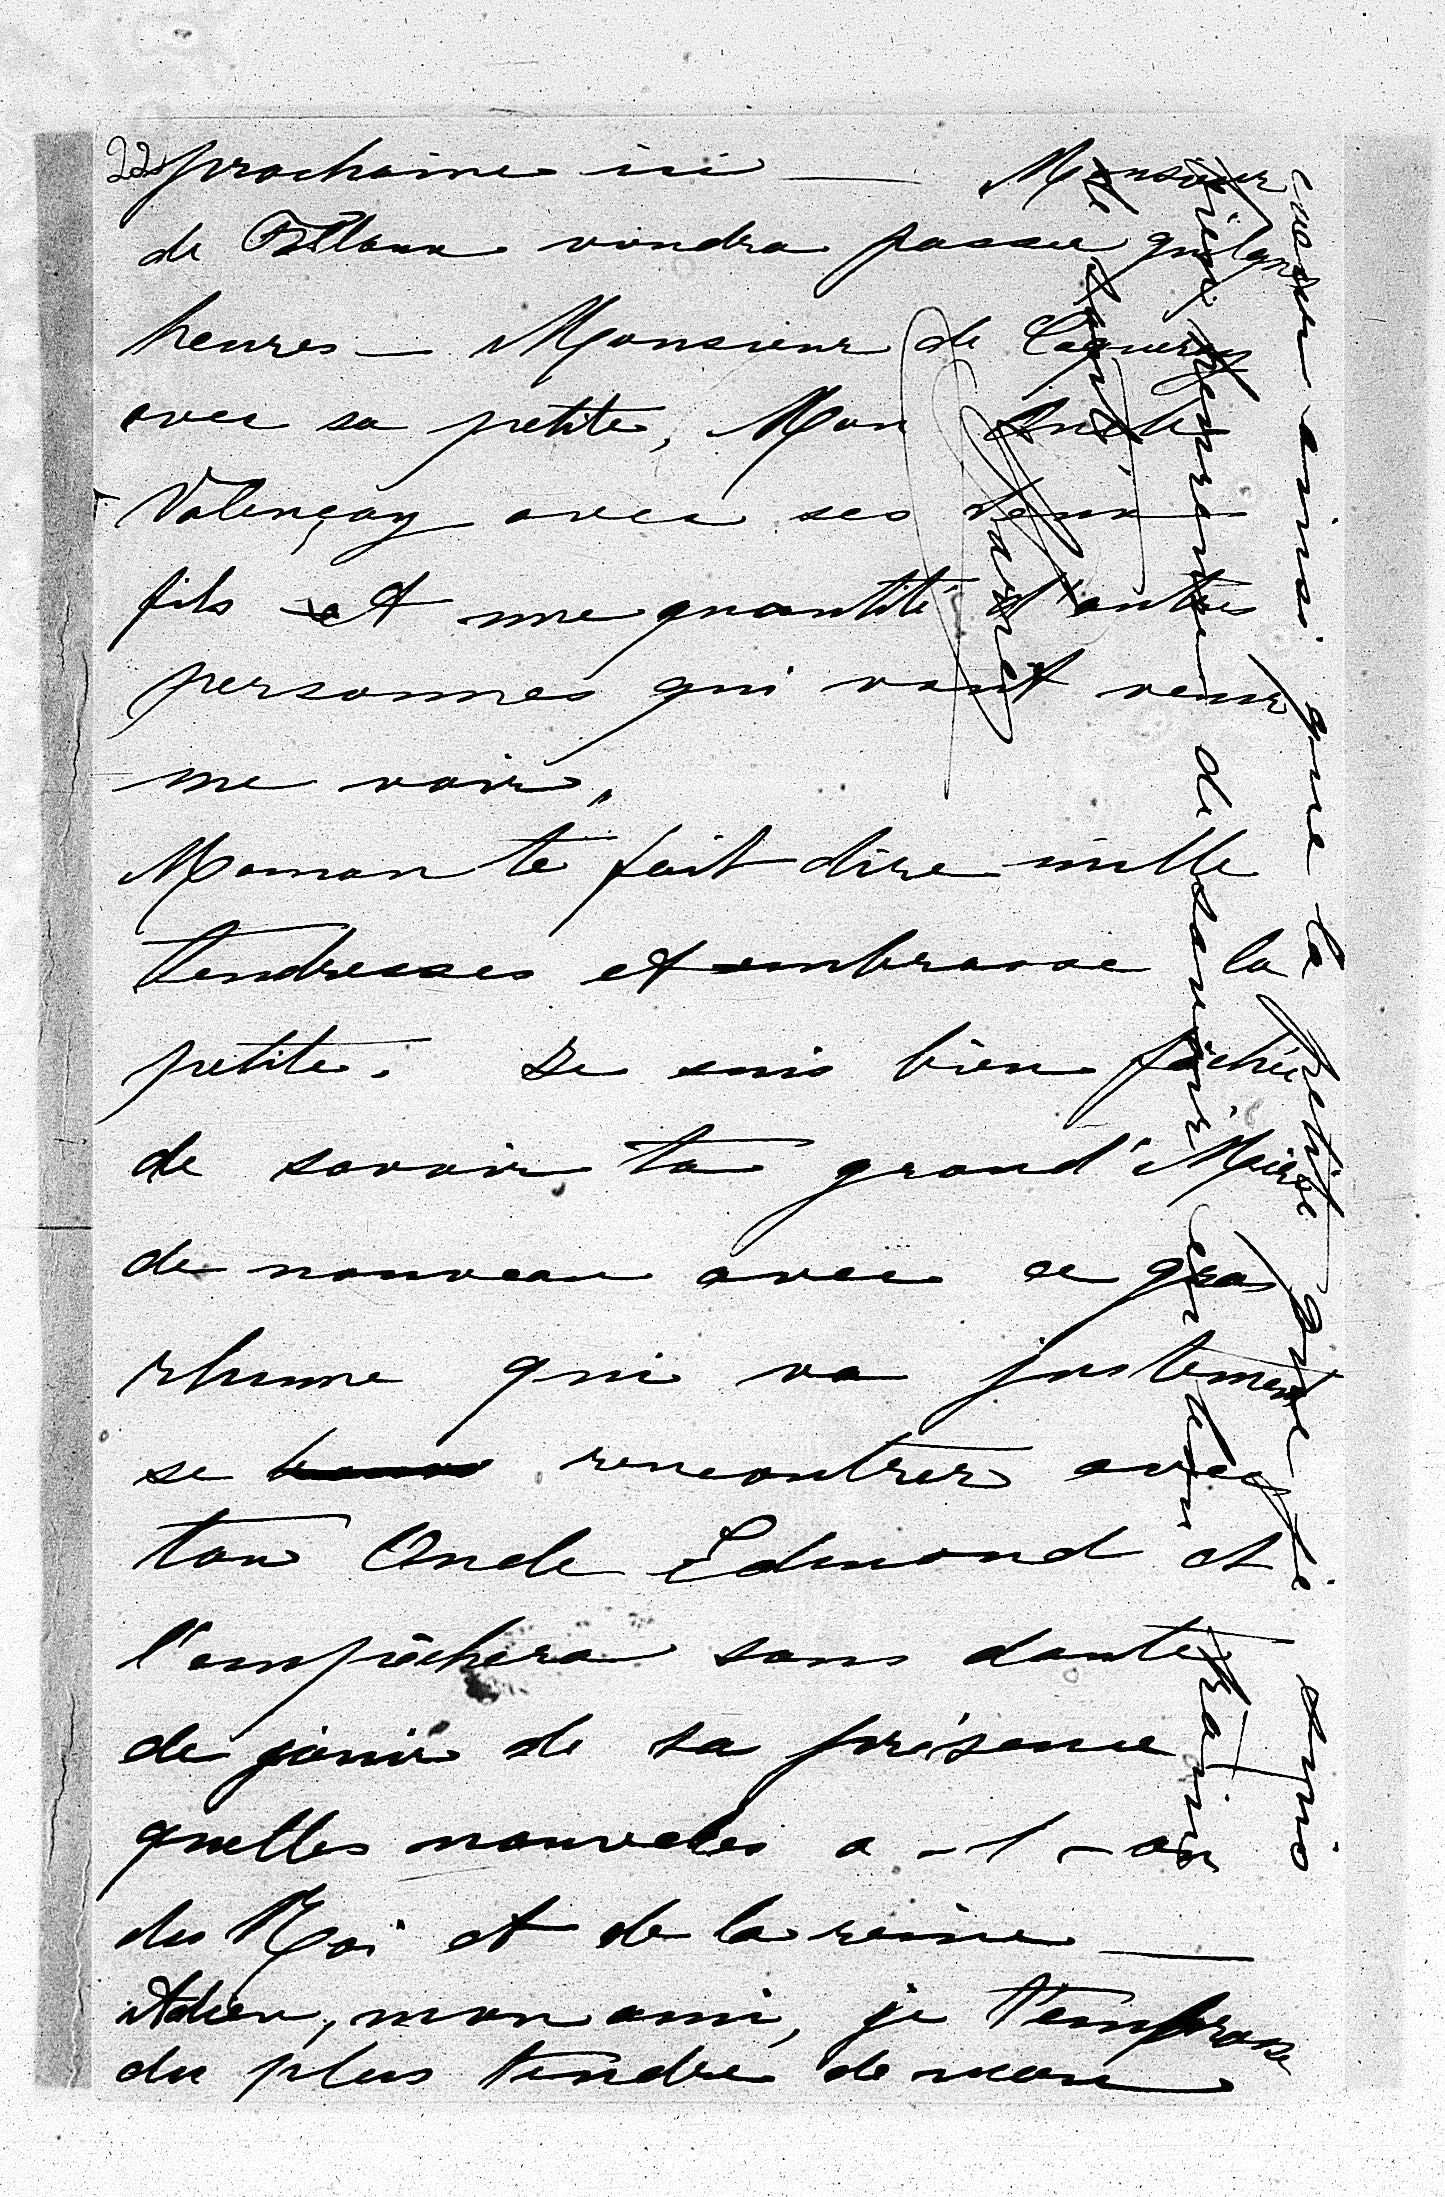 22
prochaine ici — Monsieur
de vindra passer quelques
heures — Monsieur de Caqueray
avec sa petite, Mon Oncle
Valençay avec ses deux
fils et une quantité d'autres
personnes qui vont venir
me voir.
Maman te fait dire mille
tendresses et embrasse la
petite. Je suis bien fâchée
de savoir ta grand'Mère
de nouveau avec ce gros
rhume qui va justement
se rencontrer avec
ton Oncle Edmond et
l'empêchera sans doute
de jouir de sa présence
quelles nouvelles a-t-on
du Roi et de la reine —
Adieu, mon ami, je t'embrasse
du plus tendre de mon
cœur ainsi que la petite que je suis
bien heureuse de savoir en bon train
de santé
Marie